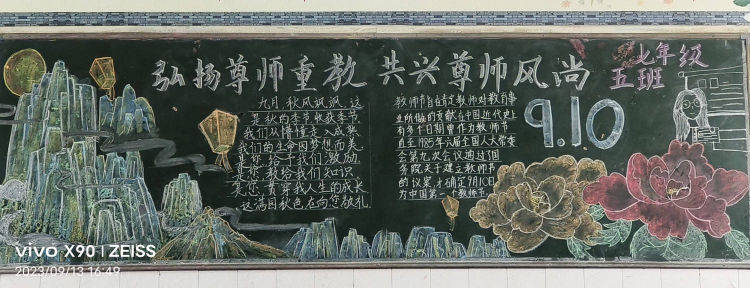 弘扬尊师重教 共兴尊师风尚
七年级
五班
九月 秋风飒飒 这
是秋的季节收获季节
我们从懵懂走入成熟
我们的生命因梦想而美
是你 给予我们激励
是你 教给我们知识
是您 贯穿我人生的成长
这满园秋色为向您敬礼
教师节旨在肯定教师对教育事
业所做的贡献在中国近代史上
有多个日期曾作为教师节
直至1985年六届全国人大常委
会第九次会议通过国
务院关于建立教师节
的议案 才确定9月10日
为中国第一个教师节
9.10
vivo X90 | ZEISS
2023/09/13 16:49